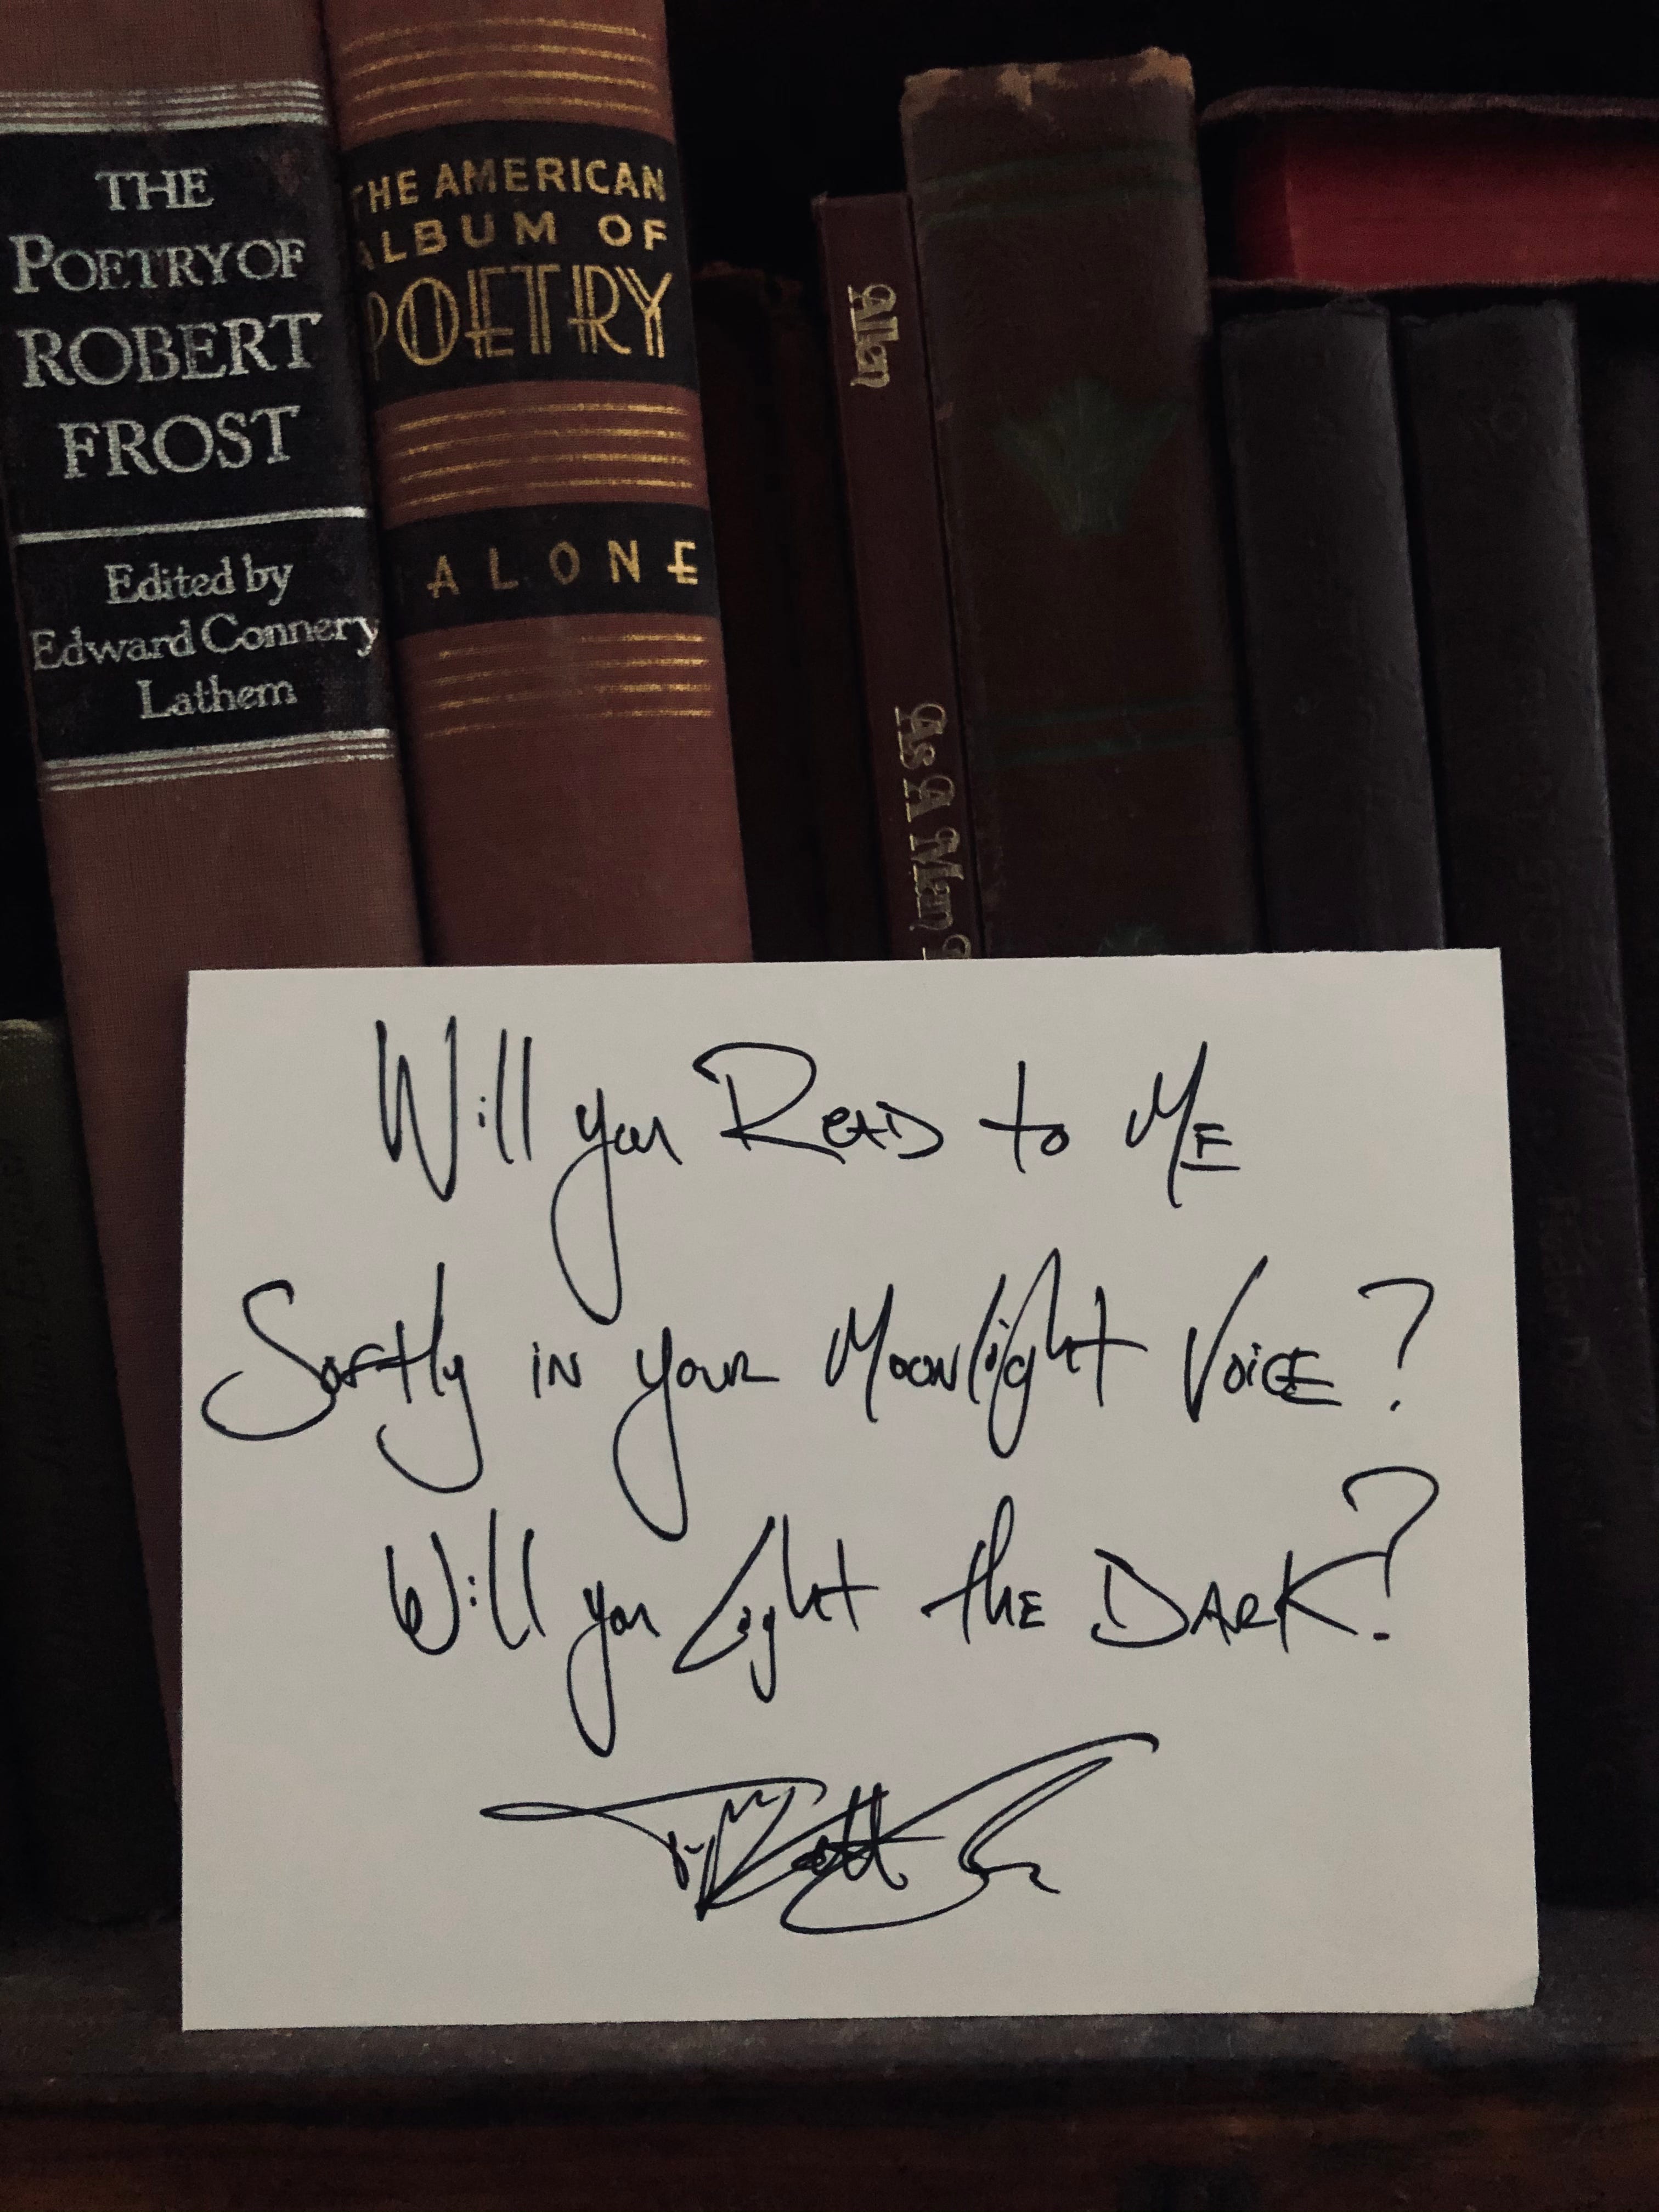 THE
POETRY OF
ROBERT
FROST
Edited by
Edward Connery
Lathem
THE AMERICAN
ALBUM OF
POETRY
ALONE
Allen
As A Man
Will you Read to Me
Softly in your Moonlight Voice?
Will you Light the Dark?